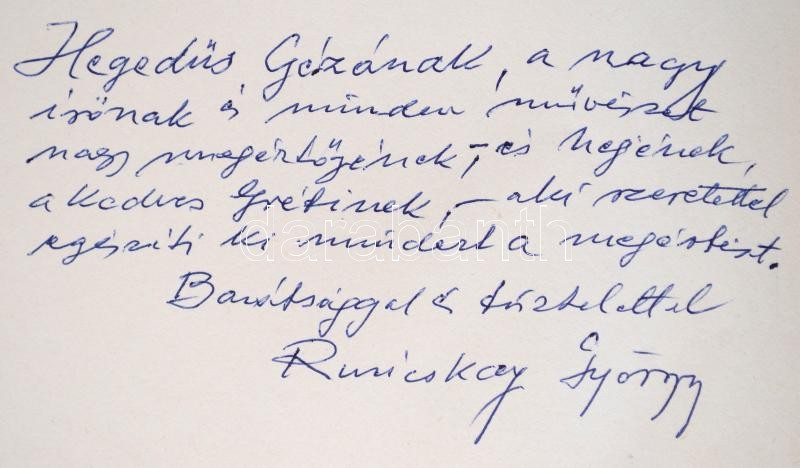 Hegedüs Gézának, a nagy
írónak és minden művészet
nagy megértőjének, – és nejének,
a kedves Grétinek, – aki szeretettel
egészíti ki mindezt a megértést.
Barátsággal és tisztelettel
Ruzicskay György
darabanth